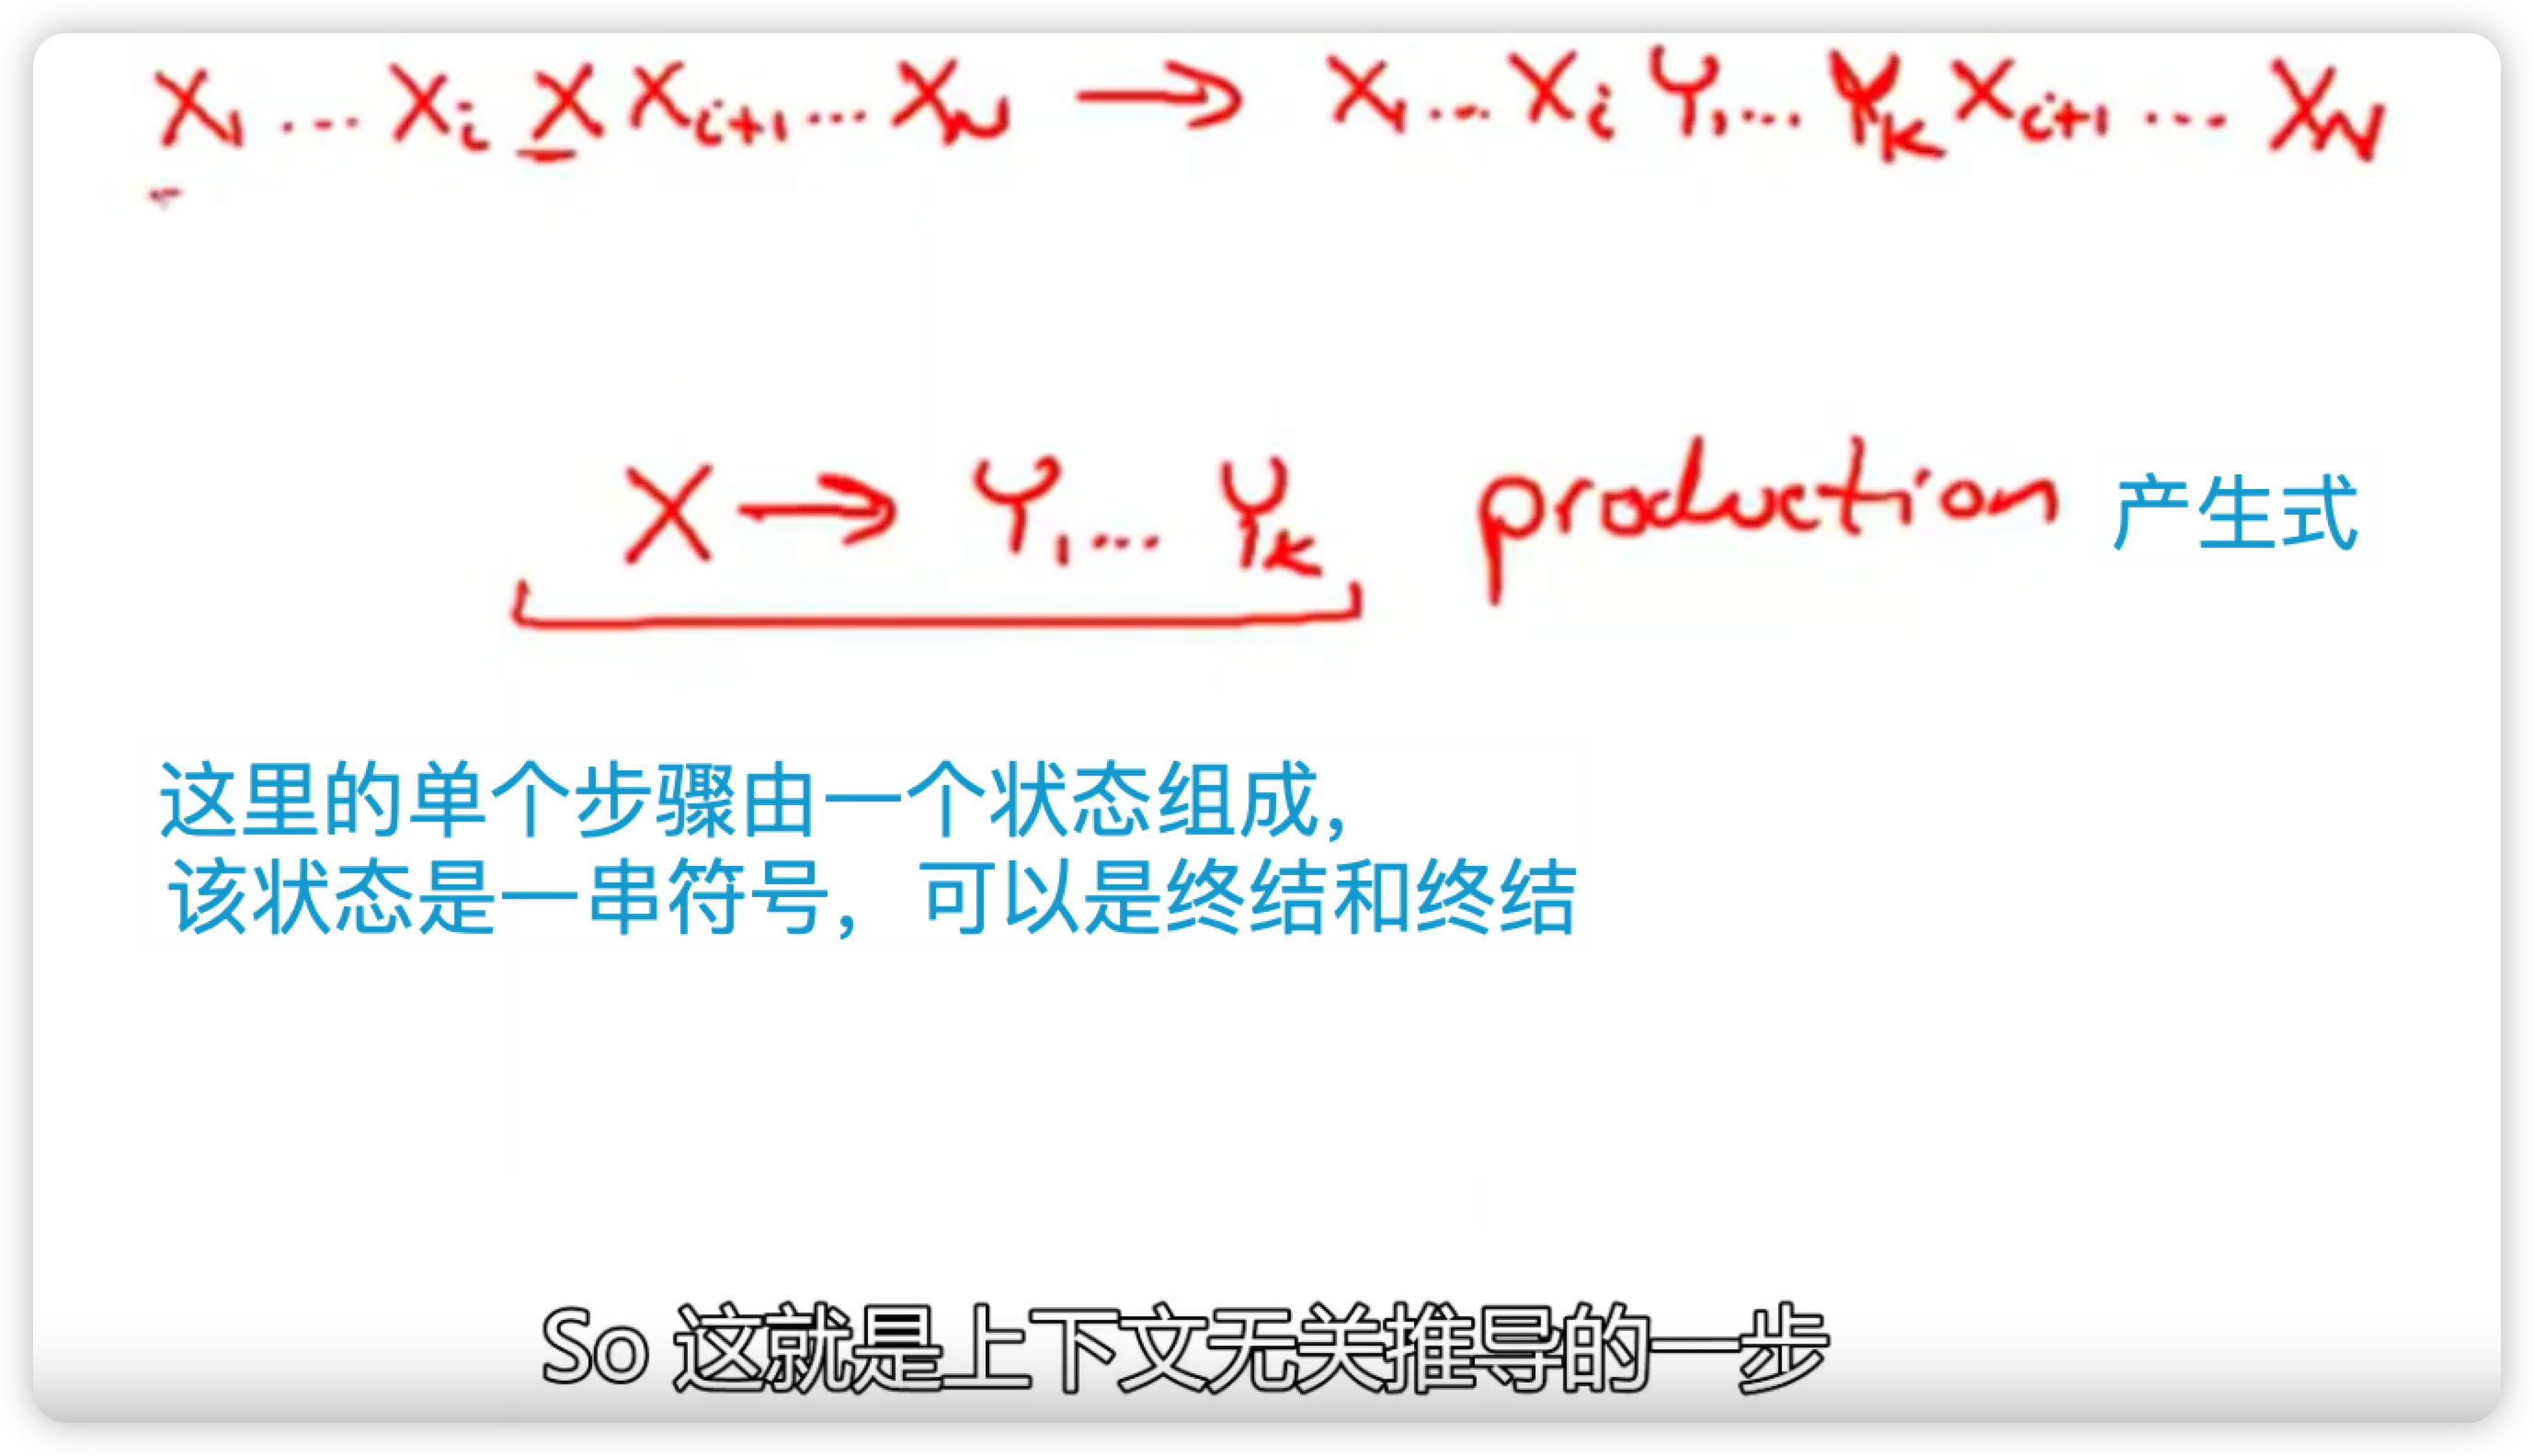 X₁ ... Xᵢ X Xᵢ₊₁ ... Xₙ → X₁ ... Xᵢ Y₁ ... Yₖ Xᵢ₊₁ ... X_N
X → Y₁ ... Yₖ production 产生式
这里的单个步骤由一个状态组成，
该状态是一串符号，可以是终结和终结
So 这就是上下文无关推导的一步